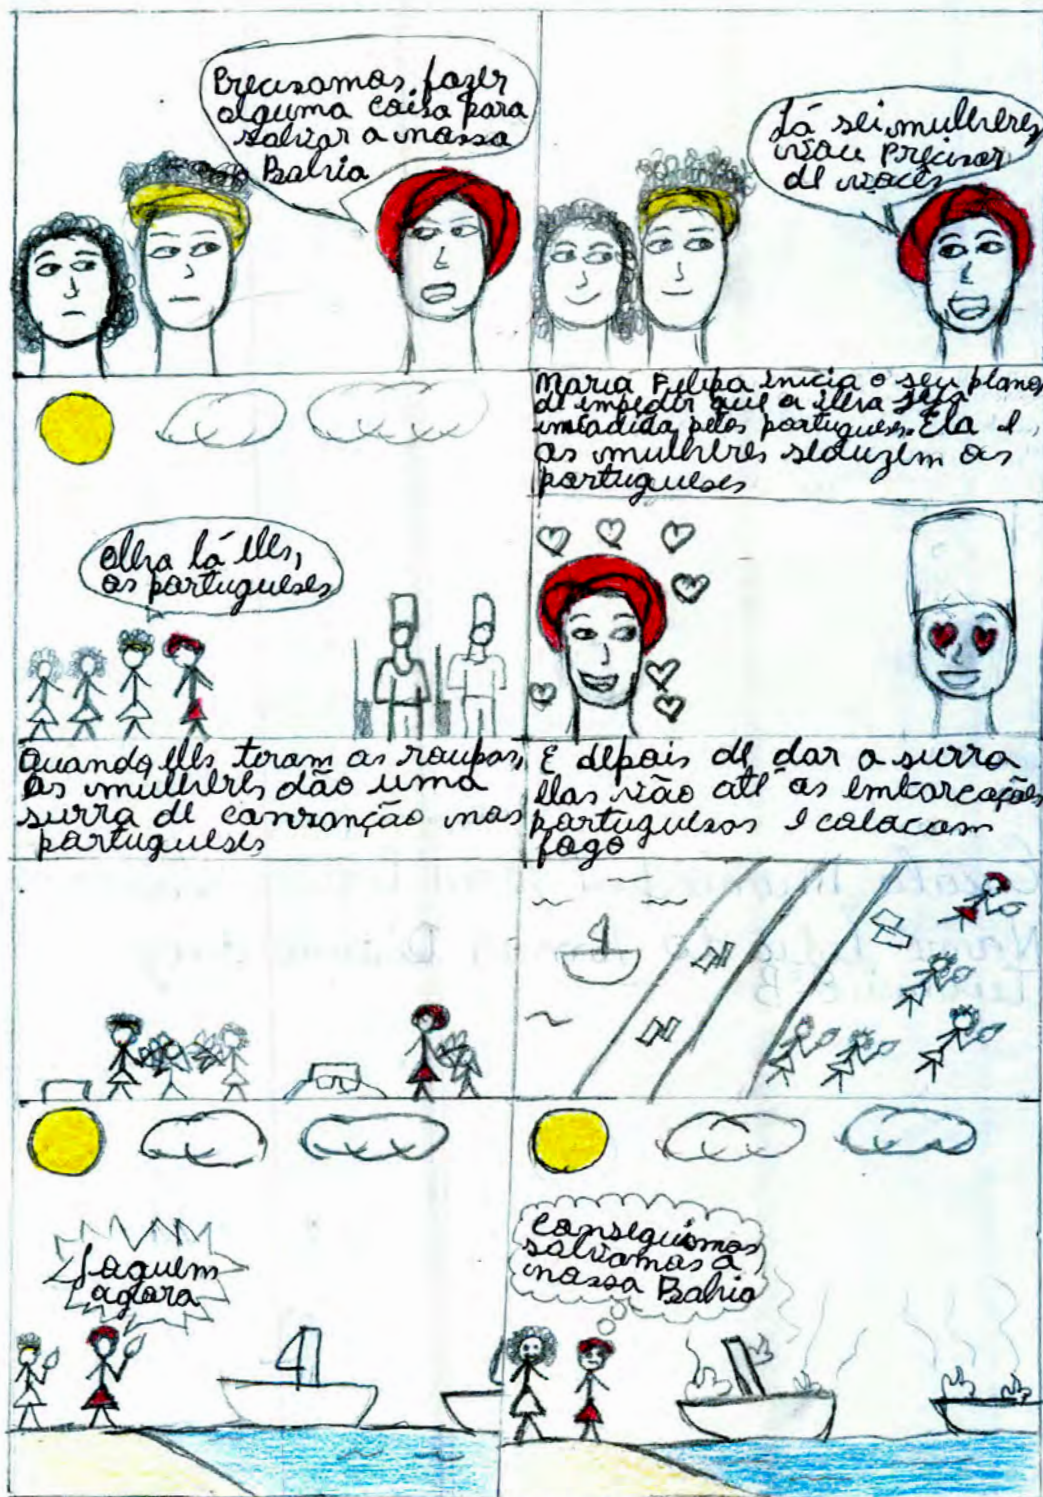 Precisamos fazer
alguma coisa para
salvar a nossa
Bahia
Já sei, mulheres
vou precisar
de vocês
Olha lá eles,
os portugueses
Maria Felipa inicia o seu plano
de impedir que a ilha seja
invadida pelos portugueses. Ela e
as mulheres seduzem os
portugueses
Quando eles tiram as roupas,
as mulheres dão uma
surra de cansanção nos
portugueses
E depois de dar a surra
elas vão até as embarcações
portuguesas e colocam
fogo
Joguem
agora
Conseguimos
salvamos a
nossa Bahia